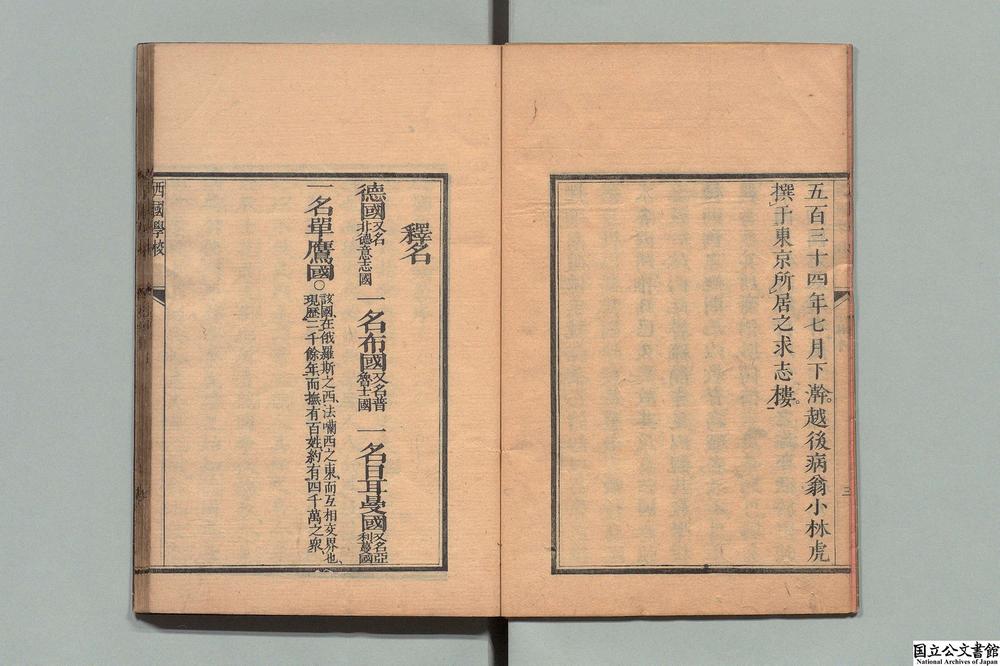 五百三十四年七月下澣。越後病翁小林虎
撰于東京所居之求志樓。
三
釋名
德國又名北德意志國 一名布國又名普魯士國 一名日耳曼國又名亞利曼國
一名單鷹國○該國、在俄羅斯之西、法嘯西之東、而互相交界也、現歷二千餘年而撫有百姓約有四千萬之衆、
西國學校
国立公文書館
National Archives of Japan